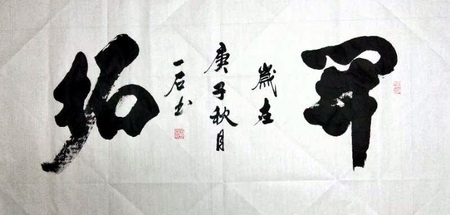 开
歲在
庚子秋月
一石书
拓